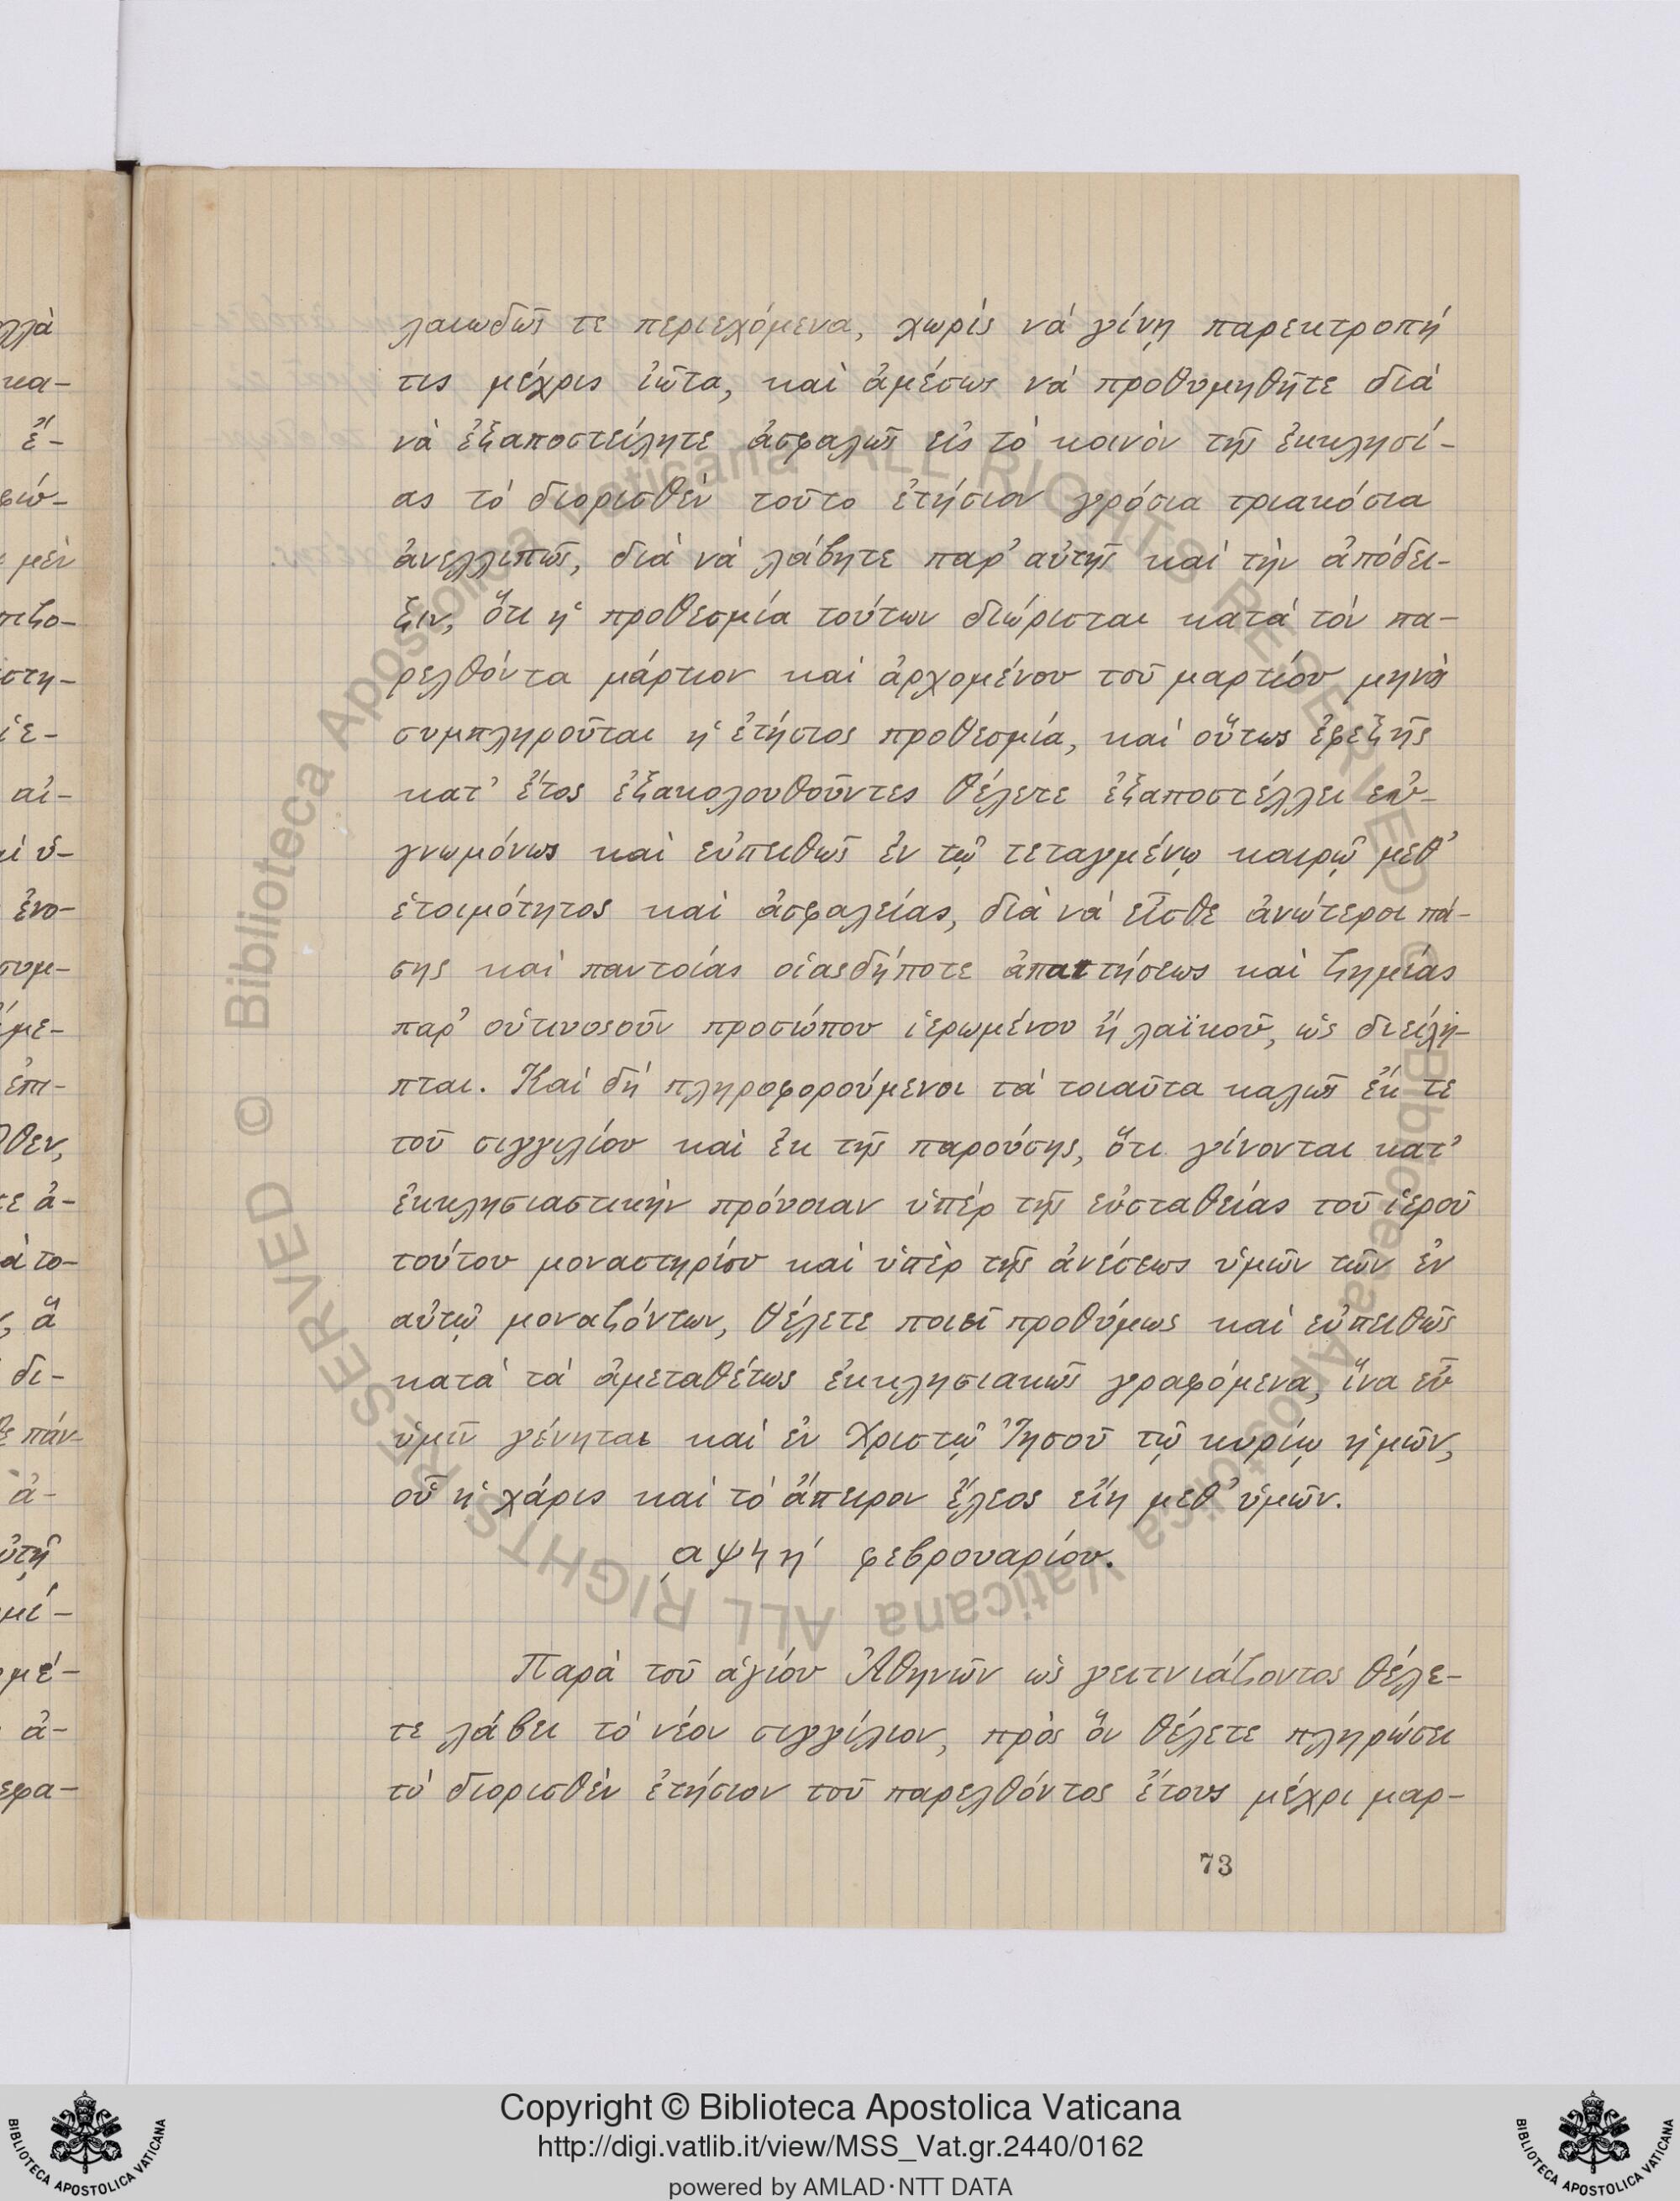 λαιωδῶς τε περιεχόμενα, χωρίς νά γίνῃ παρεκτροπή
τις μέχρις ἰῶτα, καὶ ἀμέσως νά προθυμηθῆτε διά
νὰ ἐξαποστείλητε ἀσφαλῶς εἰς τὸ κοινὸν τῆς ἐκκλησί-
ας τὸ διορισθὲν τοῦτο ἐτήσιον γρόσια τριακόσια
ἀνελλιπῶς, διὰ νὰ λάβητε παρ' αὐτῆς καὶ τὴν ἀπόδει-
ξιν, ὅτι ἡ προθεσμία τούτων διώρισται κατά τόν πα-
ρελθόντα μάρτιον καὶ ἀρχομένου τοῦ μαρτίου μηνὸς
συμπληροῦται ἡ ἐτήσιος προθεσμία, καὶ οὕτως ἐφεξῆς
κατ' ἔτος ἐξακολουθοῦντες θέλετε ἐξαποστέλλει εὐ-
γνωμόνως καὶ εὐπειθῶς ἐν τῷ τεταγμένῳ καιρῷ μεθ'
ἑτοιμότητος καὶ ἀσφαλείας, διὰ νὰ εἶσθε ἀνώτεροι πά-
σης καὶ παντοίας οἱασδήποτε ἀπαιτήσεως καὶ ζημίας
παρ' οὑτινοσοῦν προσώπου ἱερωμένου ἢ λαϊκοῦ, ὡς διείλη-
πται. Καὶ δὴ πληροφορούμενοι τὰ τοιαῦτα καλῶς ἔκ τε
τοῦ σιγγιλίου καὶ ἐκ τῆς παρούσης, ὅτι γίνονται κατ'
ἐκκλησιαστικὴν πρόνοιαν ὑπὲρ τῆς εὐσταθείας τοῦ ἱεροῦ
τούτου μοναστηρίου καὶ ὑπὲρ τῆς ἀνέσεως ὑμῶν τῶν ἐν
αὐτῷ μοναζόντων, θέλετε ποιεῖ προθύμως καὶ εὐπειθῶς
κατὰ τὰ ἀμεταθέτως ἐκκλησιακῶς γραφόμενα, ἵνα εὖ
ὑμῖν γένηται καὶ ἐν Χριστῷ Ἰησοῦ τῷ κυρίῳ ἡμῶν,
οὗ ἡ χάρις καὶ τὸ ἄπειρον ἔλεος εἴη μεθ' ὑμῶν.
͵αψϟη' φεβρουαρίου.
Παρὰ τοῦ ἁγίου Ἀθηνῶν ὡς γειτνιάζοντος θέλε-
τε λάβει τὸ νέον σιγγίλιον, πρὸς ὃν θέλετε πληρώσει
τὸ διορισθὲν ἐτήσιον τοῦ παρελθόντος ἔτους μέχρι μαρ-
73
© Biblioteca Apostolica Vaticana ALL RIGHTS RESERVED © Biblioteca Apostolica Vaticana ALL RIGHTS RESERVED
Copyright © Biblioteca Apostolica Vaticana
http://digi.vatlib.it/view/MSS_Vat.gr.2440/0162
powered by AMLAD·NTT DATA
BIBLIOTECA APOSTOLICA VATICANA
BIBLIOTECA APOSTOLICA VATICANA